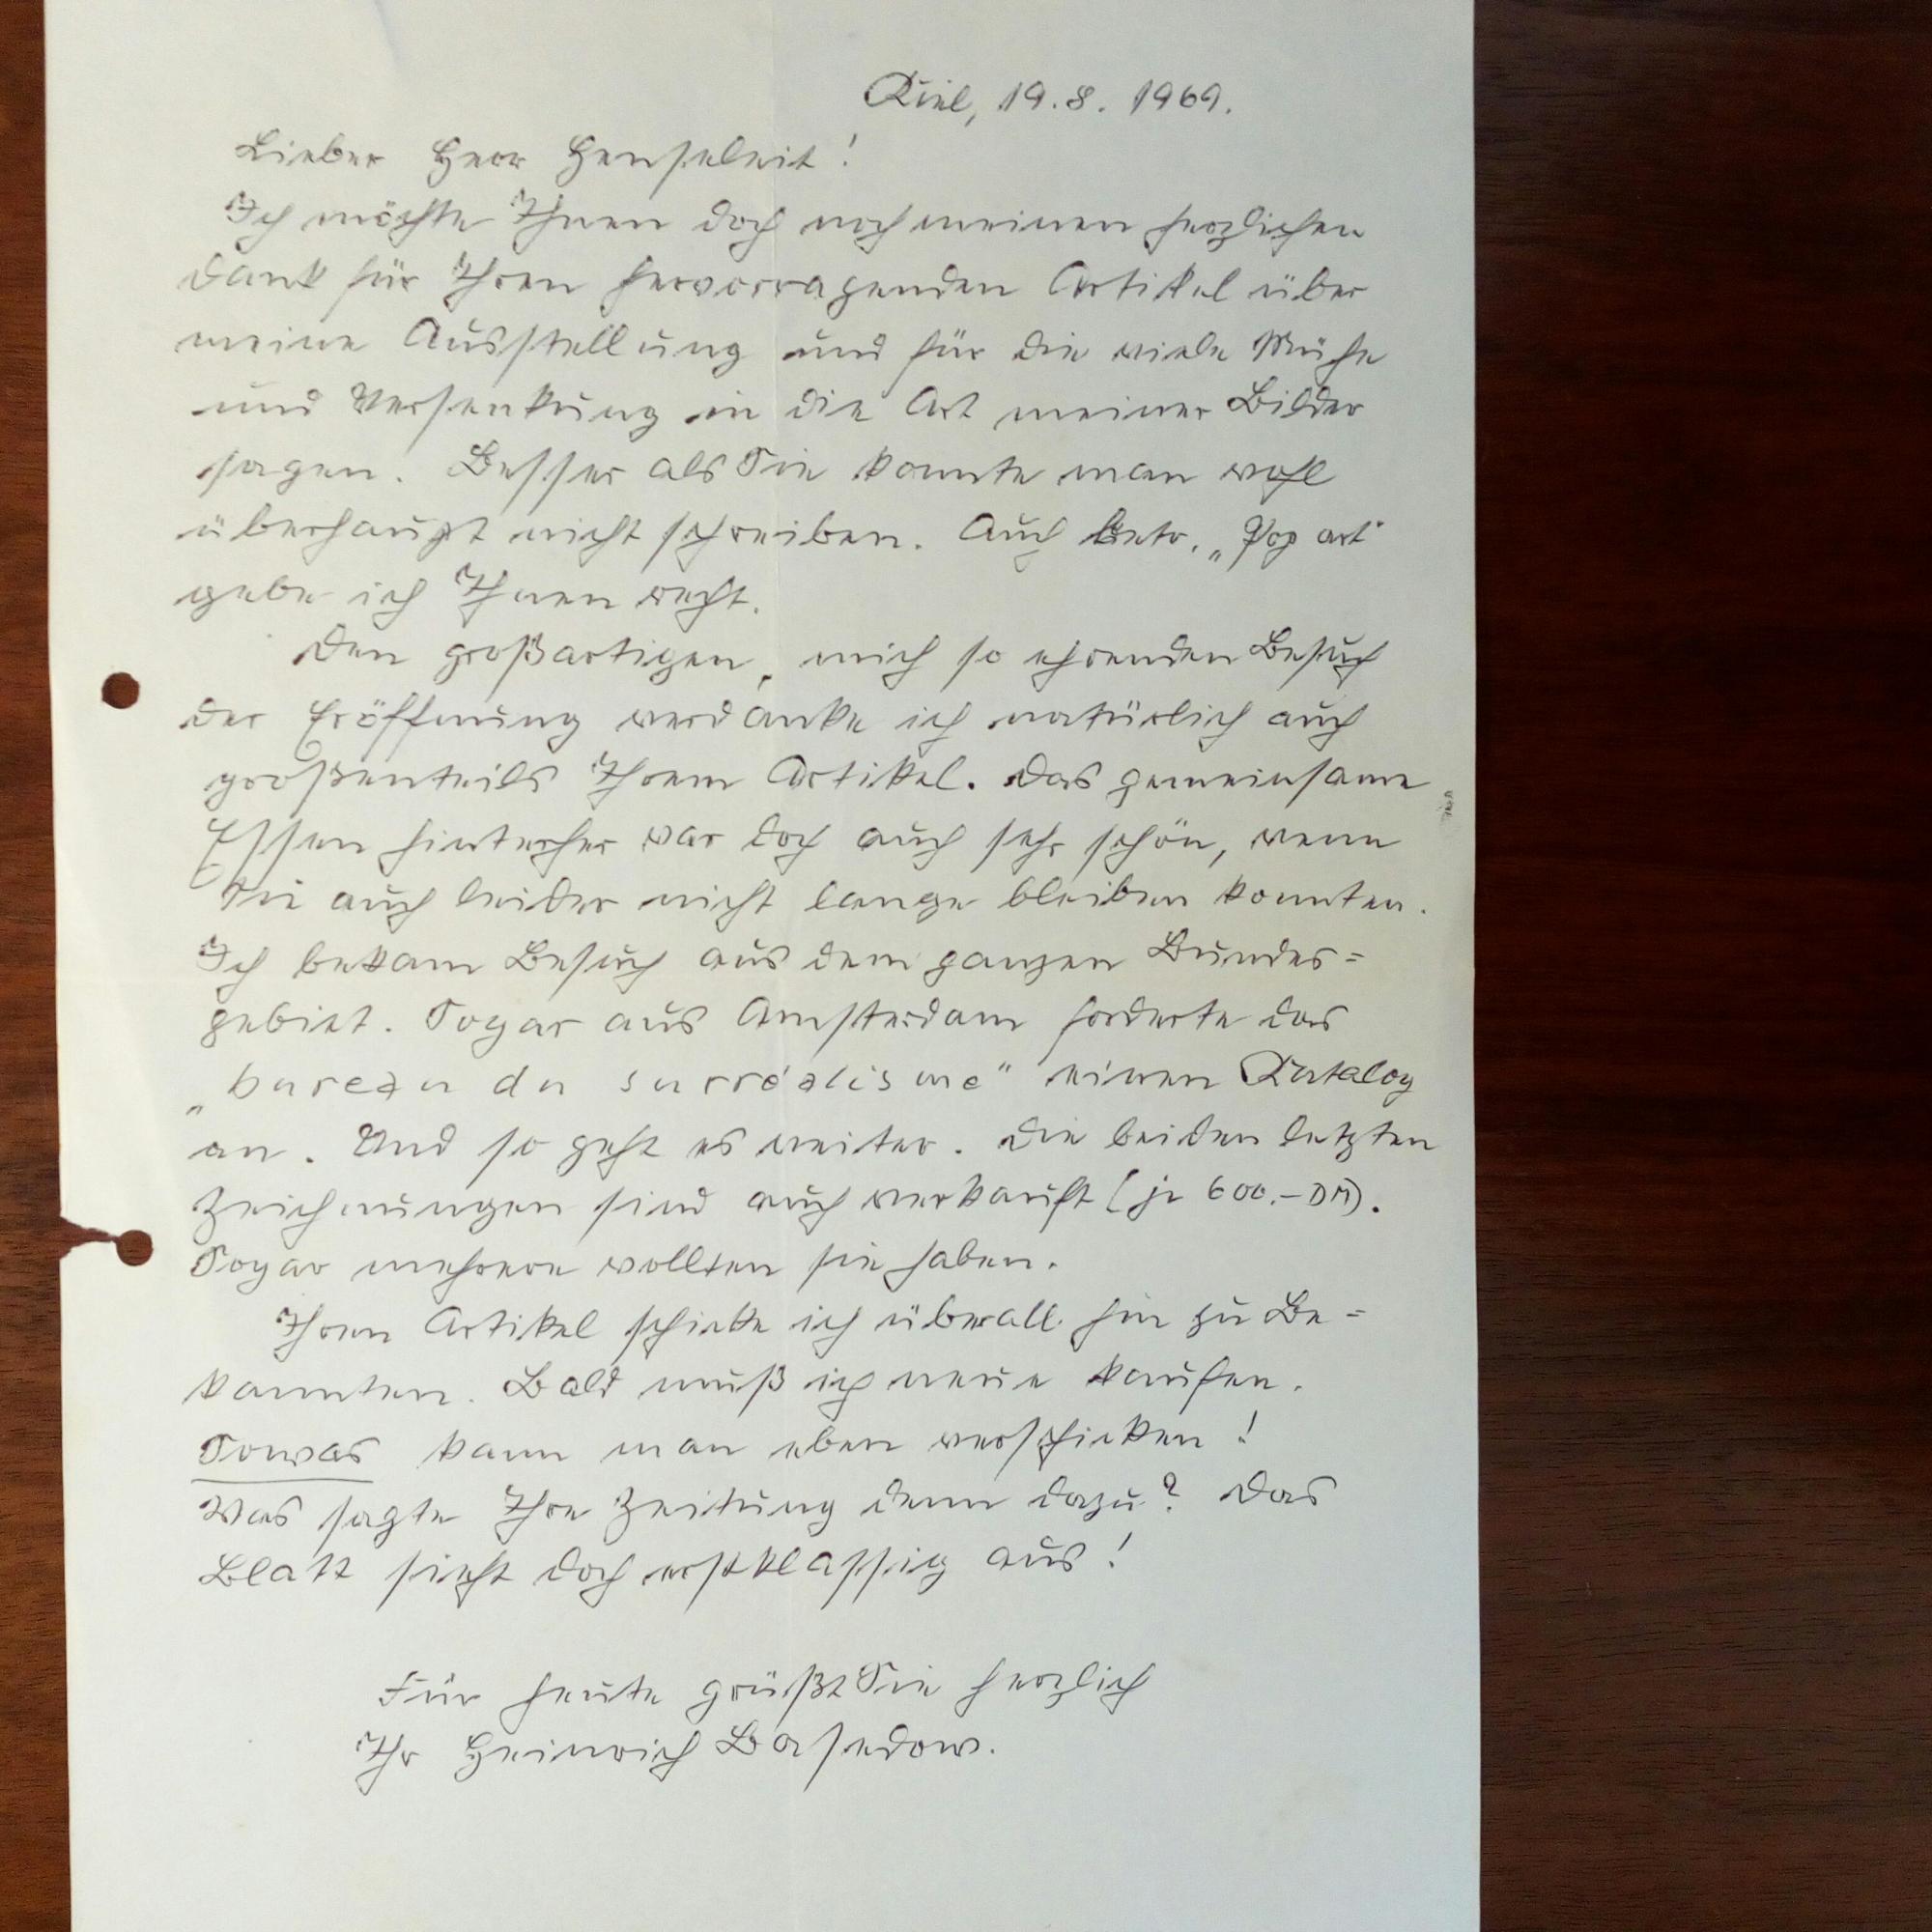 Kiel, 19.8. 1969.
Lieber Herr Henseleit!
Ich möchte Ihnen doch noch meinen herzlichen
Dank für Ihren hervorragenden Artikel über
meine Ausstellung und für die viele Mühe
und Versenkung in die Art meiner Bilder
sagen. Besser als Sie konnte man wohl
überhaupt nicht schreiben. Auch betr. „Pop art“
gebe ich Ihnen recht.
Den großartigen, mich so ehrenden Besuch
der Eröffnung verdanke ich natürlich auch
großenteils Ihrem Artikel. Das gemeinsame
Essen hinterher war doch auch sehr schön, wenn
Sie auch leider nicht lange bleiben konnten.
Ich bekam Besuch aus dem ganzen Bundes=
gebiet. Sogar aus Amsterdam forderte das
„bureau du surréalisme“ einen Katalog
an. Und so geht es weiter. Die beiden letzten
Zeichnungen sind auch verkauft (je 600.– DM).
Sogar mehrere wollten sie haben.
Ihren Artikel schicke ich überall hin zu Be=
kannten. Bald muß ich neue kaufen.
Sowas kann man eben verschicken!
Was sagte Ihre Zeitung denn dazu? Das
Blatt sieht doch erstklassig aus!
Für heute grüßt Sie herzlich
Ihr Heinrich Basedow.